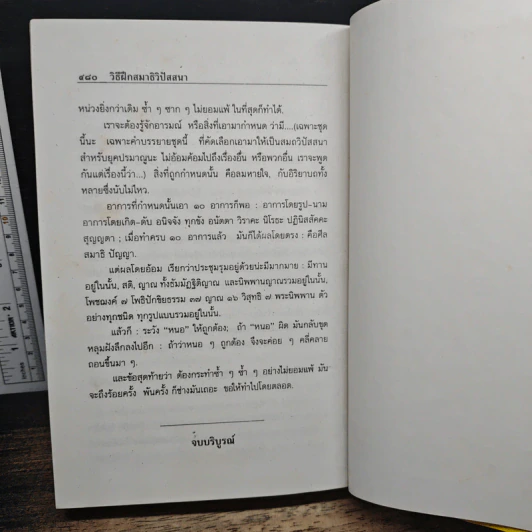 ๔๘๐ วิธีฝึกสมาธิวิปัสสนา
หน่วงยิ่งกว่าเดิม ซ้ำ ๆ ซาก ๆ ไม่ยอมแพ้ ในที่สุดก็ทำได้.
เราจะต้องรู้จักอารมณ์ หรือสิ่งที่เอามากำหนด ว่ามี....(เฉพาะชุด
นี้นะ เฉพาะคำบรรยายชุดนี้ ที่คัดเลือกเอามาให้เป็นสมถวิปัสสนา
สำหรับยุคปรมาณูนะ ไม่อ้อมค้อมไปถึงเรื่องอื่น หรือพวกอื่น เราจะพูด
กันแต่เรื่องนี้ว่า...) สิ่งที่ถูกกำหนดนั้น คือลมหายใจ, กับอิริยาบถทั้ง
หลายซึ่งนับไม่ไหว.
อาการที่กำหนดนั้นเอา ๑๐ อาการก็พอ : อาการโดยรูป-นาม
อาการโดยเกิด-ดับ อนิจจัง ทุกขัง อนัตตา วิราคะ นิโรธะ ปฏินิสสัคคะ
สุญญตา ; เมื่อทำครบ ๑๐ อาการแล้ว มันก็ได้ผลโดยตรง : คือศีล
สมาธิ ปัญญา.
แต่ผลโดยอ้อม เรียกว่าประชุมรุมอยู่ด้วยน่ะมีมากมาย : มีทาน
อยู่ในนั้น, สติ, ญาณ ทั้งธัมมัฏฐิติญาณ และนิพพานญาณรวมอยู่ในนั้น,
โพชฌงค์ ๗ โพธิปักขิยธรรม ๓๗ ญาณ ๑๖ วิสุทธิ ๗ พระนิพพาน ตัว
อย่างทุกชนิด ทุกรูปแบบรวมอยู่ในนั้น.
แล้วก็ : ระวัง “หนอ” ให้ถูกต้อง; ถ้า “หนอ” ผิด มันกลับขุด
หลุมฝังลึกลงไปอีก : ถ้าว่าหนอ ๆ ถูกต้อง จึงจะค่อย ๆ คลี่คลาย
ถอนขึ้นมา ๆ.
และข้อสุดท้ายว่า ต้องกระทำซ้ำ ๆ ซ้ำ ๆ อย่างไม่ยอมแพ้ มัน
จะถึงร้อยครั้ง พันครั้ง ก็ช่างมันเถอะ ขอให้ทำไปโดยตลอด.
จบบริบูรณ์